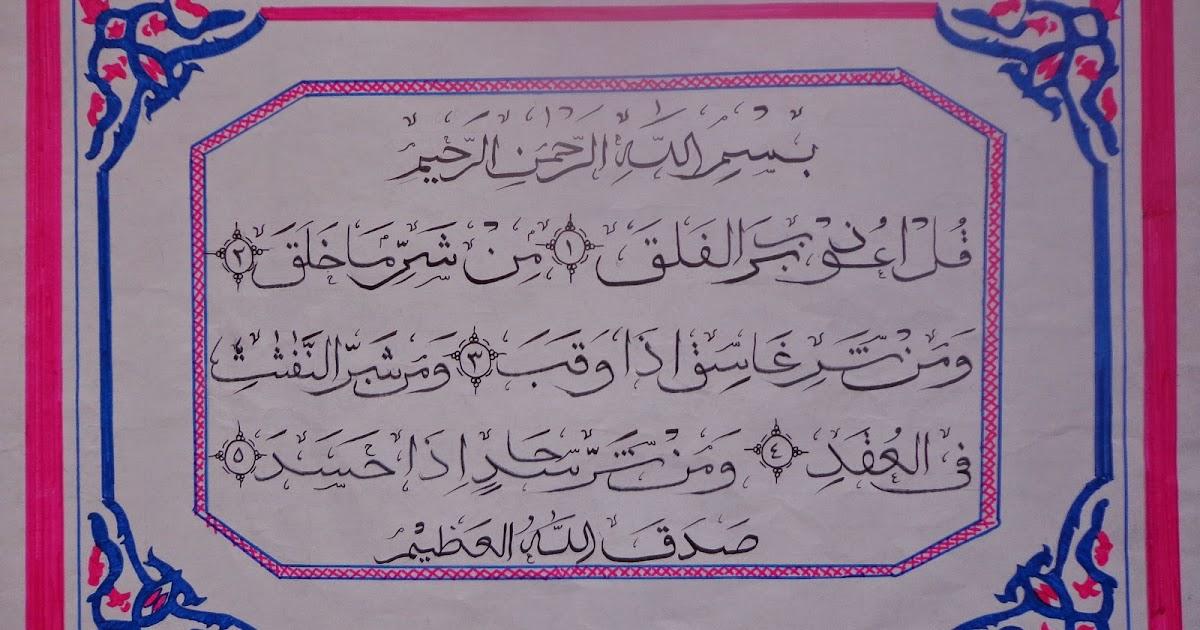 بِسْمِ اللَّهِ الرَّحْمَنِ الرَّحِيمِ
قُلْ اَعُوْذُ بِرَبِّ الفَلَقِ ١ مِنْ شَرِّ مَا خَلَقَ ٢
وَمِنْ شَرِّ غَاسِقٍ اِذَا وَقَبَ ٣ وَمِنْ شَرِّ النَّفّٰثٰتِ
فِى العُقَدِ ٤ وَمِنْ شَرِّ حَاسِدٍ اِذَا حَسَدَ ٥
صَدَقَ اللَّهُ العَظِيْمُ